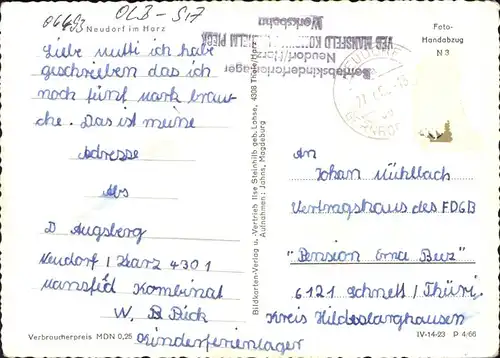 06493 Neudorf im Harz
OLB-S17
Foto-
Handabzug
N 3
VEB MANSFELD KOMBINAT WILHELM PIECK
Werksbahn
Betriebskinderferienlager
Neudorf/Harz
Liebe Mutti ich habe
geschrieben das ich
noch fünf mark brau-
che. Das ist meine
Adresse
Abs
D Augsberg
Neudorf / Harz 4301
Mansfeld Kombinat
W. B Pick
Kinderferienlager
Verbraucherpreis MDN 0,25
Bildkarten-Verlag u. Vertrieb Ilse Steinhilb geb. Lohse, 4308 Thale/Harz
Aufnahmen: Johns, Magdeburg
An
Johan Mühlbach
Vertragshaus des FDGB
"Pension Erna Buz"
6121 Schnett / Thüri.
Kreis Hildeslarghausen
IV-14-23 P 4/66